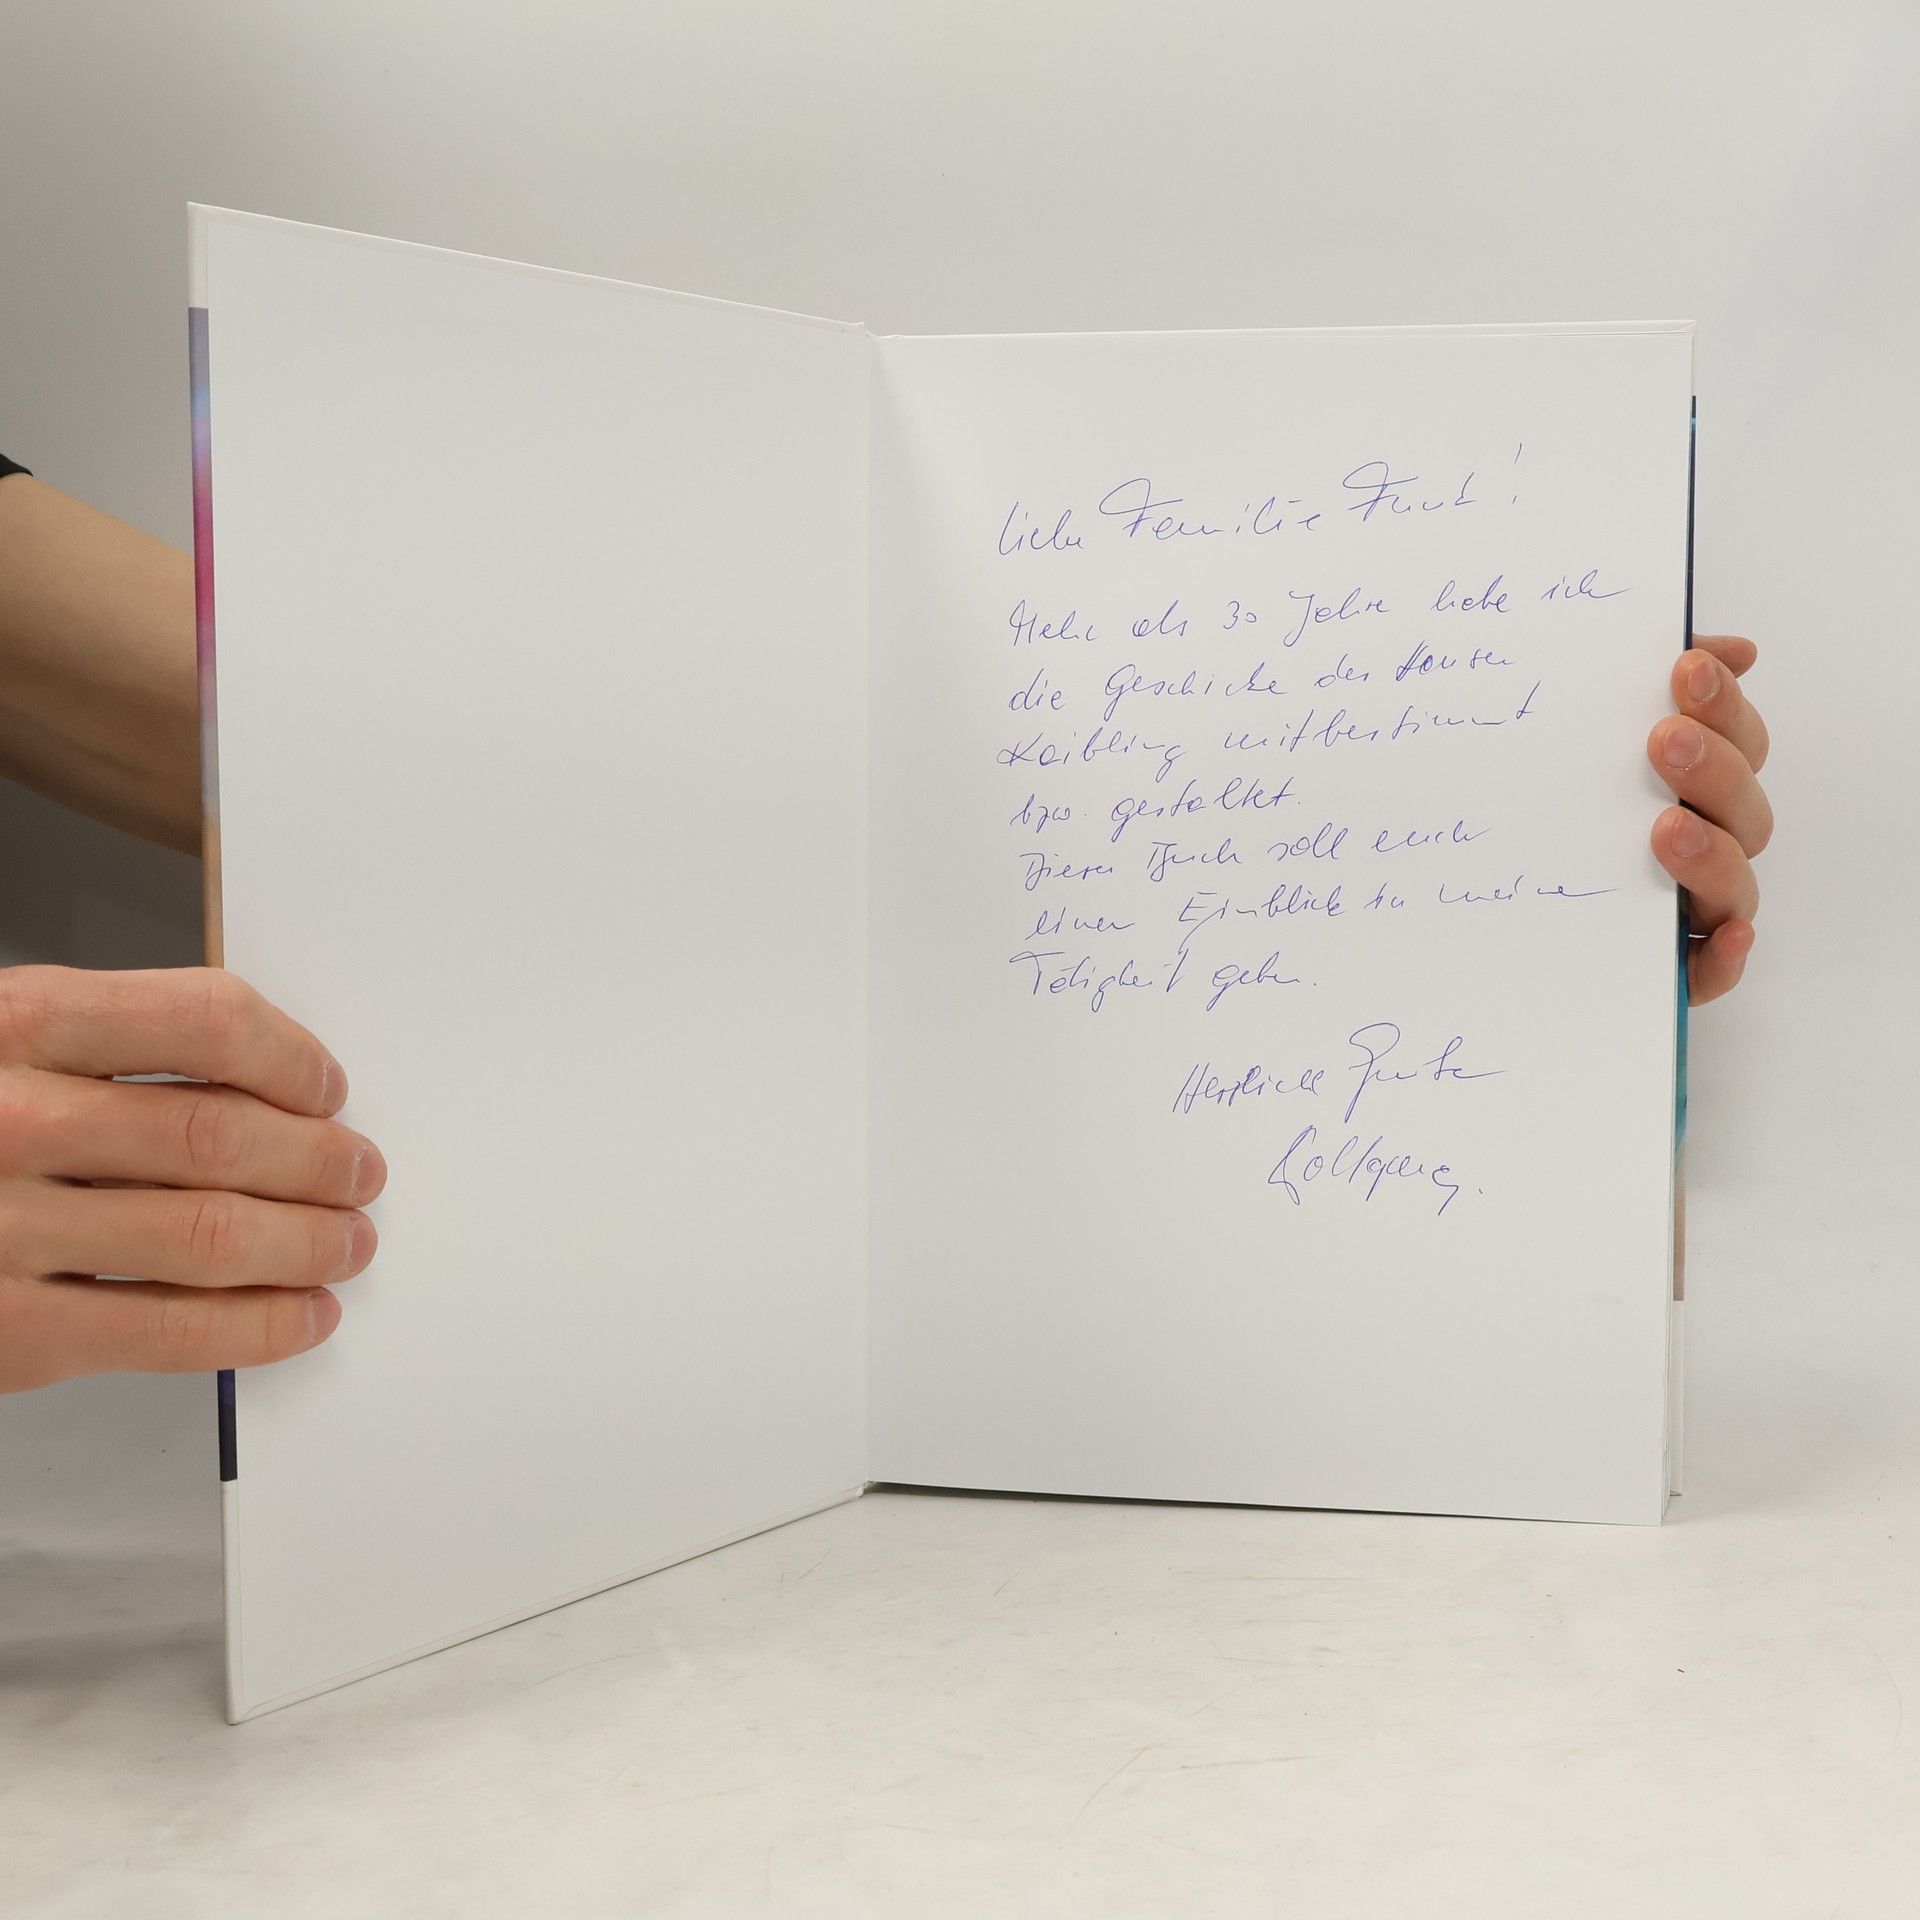 Liebe Familie Funk!
Mehr als 30 Jahre habe ich
die Geschicke des Hauser
Kaibling mitbestimmt
bzw. gestaltet.
Dieses Buch soll euch
einen Einblick in meine
Tätigkeit geben.
Herzliche Grüße
Wolfgang.